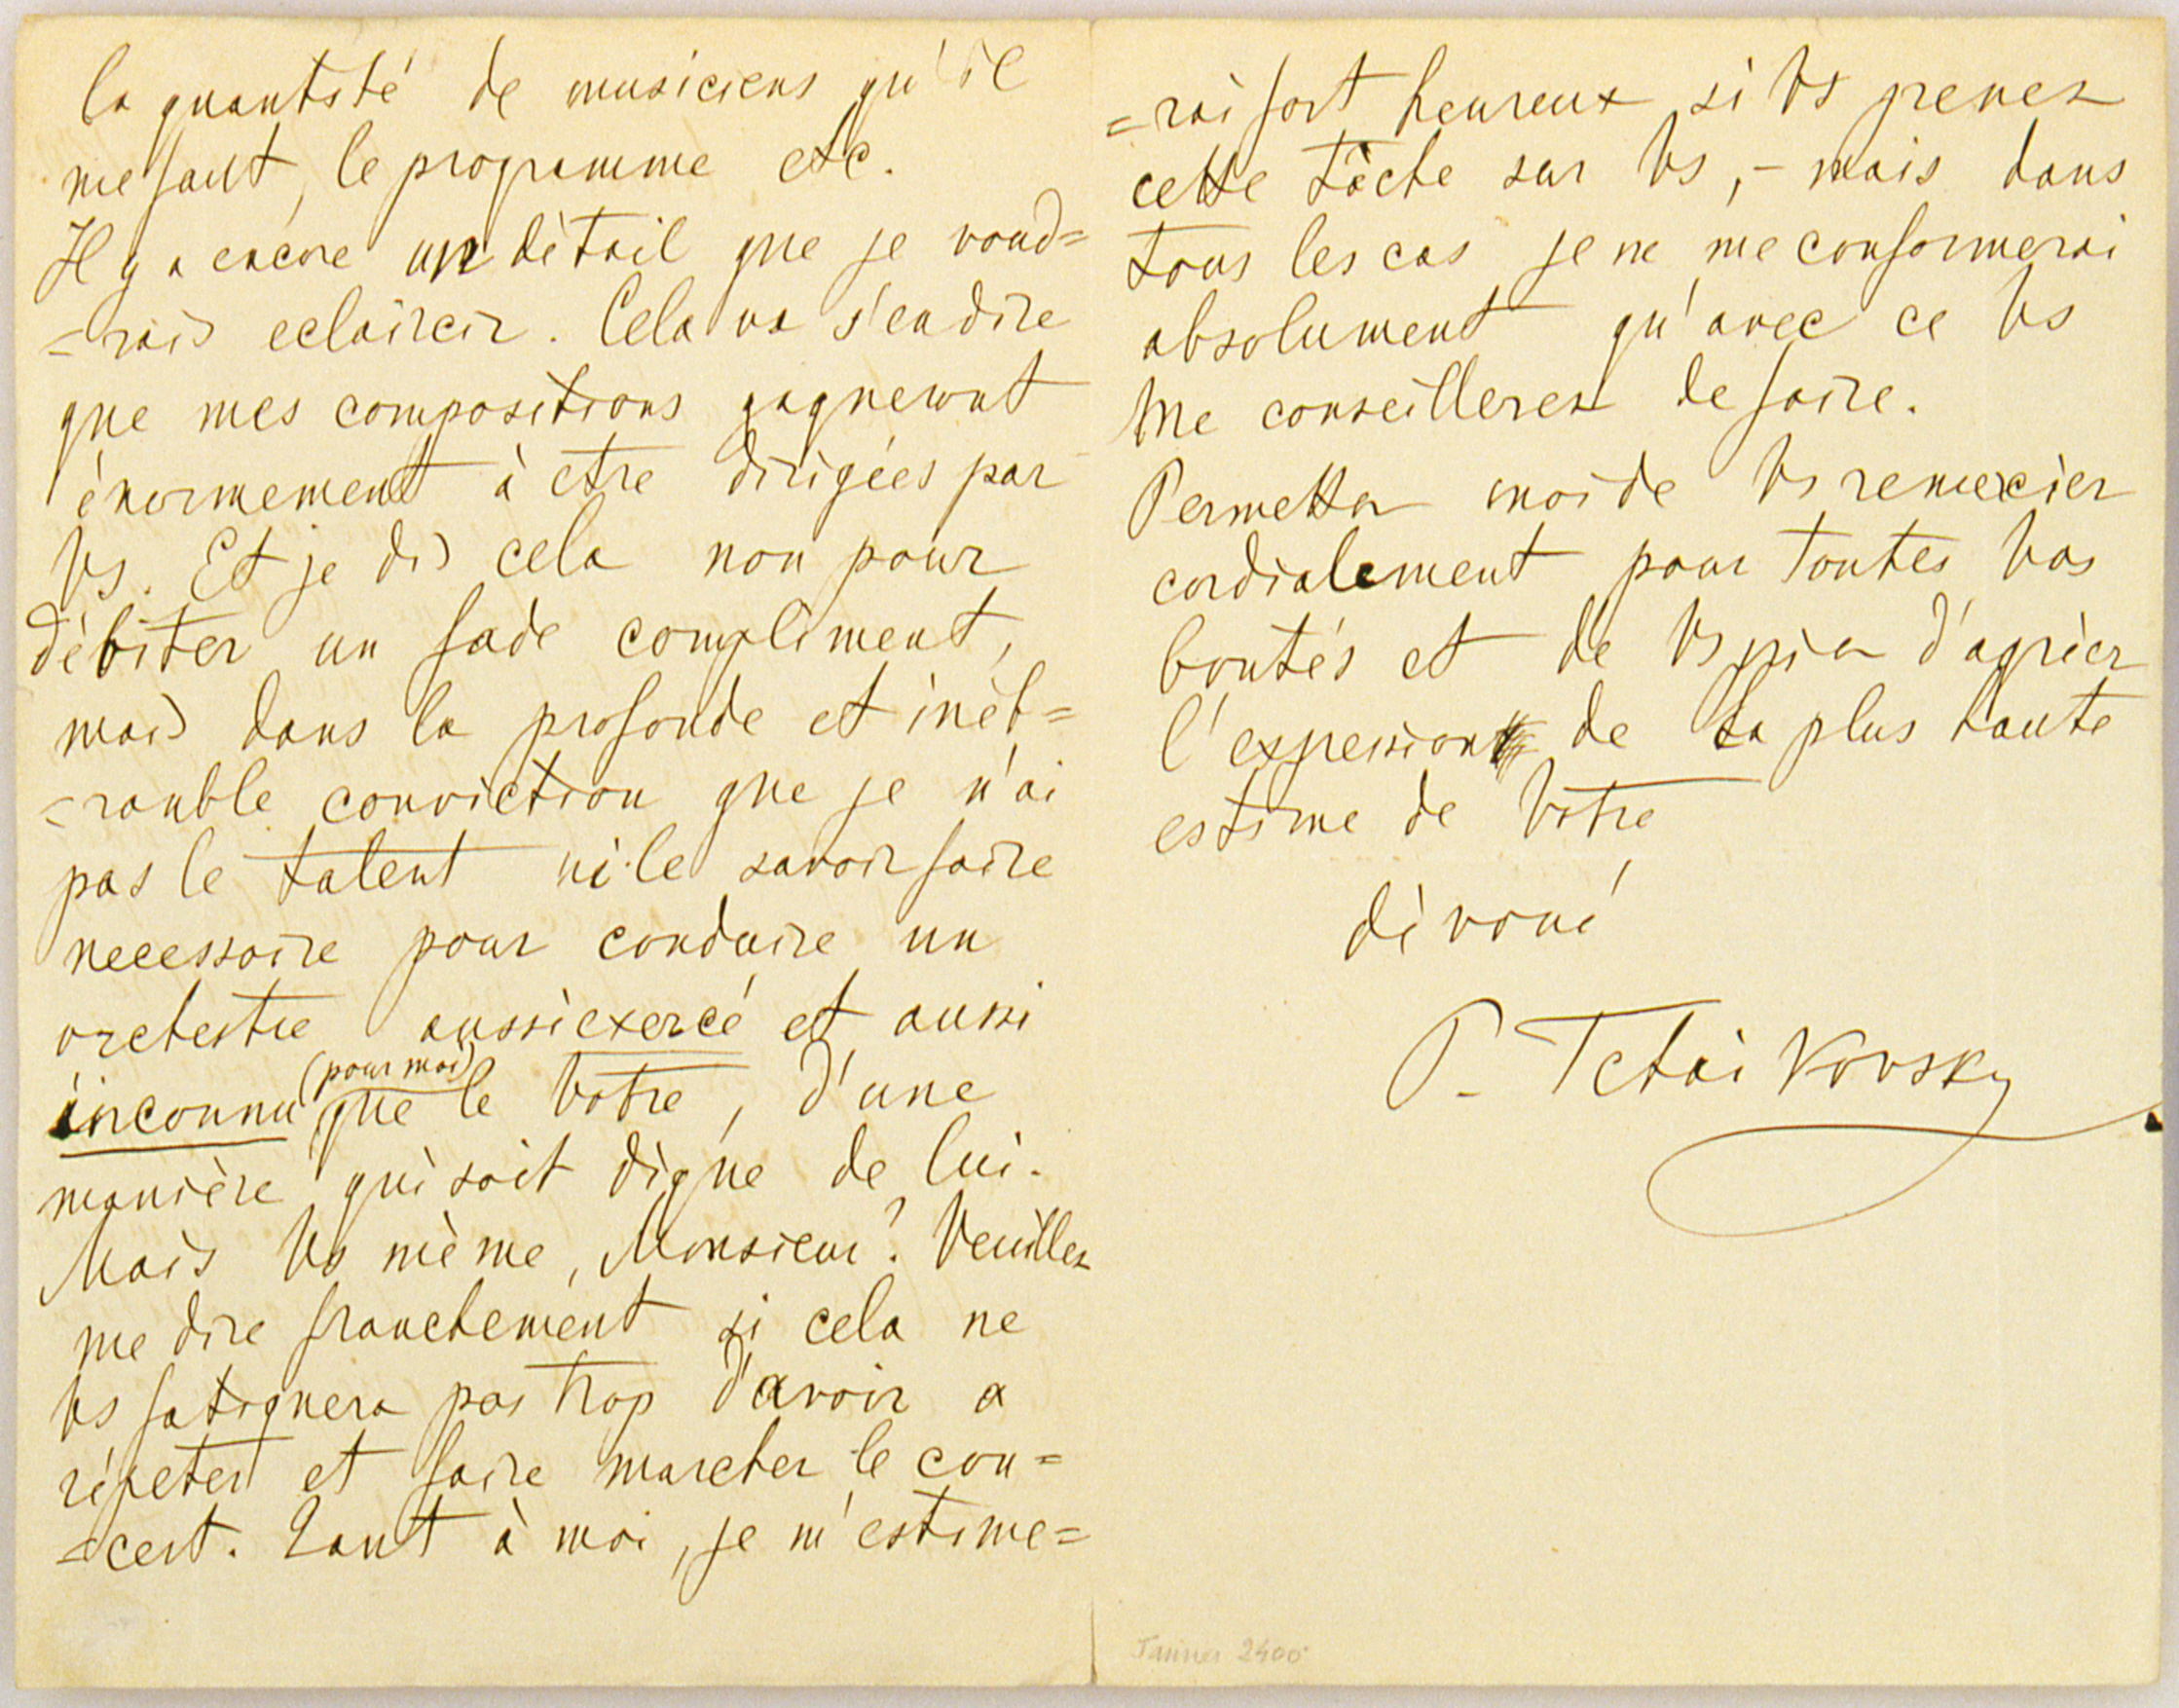 la quantité de musiciens qu'il
me faut, le programme etc.
Il y a encore un détail que je voud=
=rais eclaircir. Cela va s'en dire
que mes compositions gagneront
énormement à etre dirigées par
Vs. Et je dis cela non pour
débiter un fade compliment,
mais dans la profonde et inéb=
=ranble conviction que je n'ai
pas le talent ni le savoir faire
necessaire pour conduire un
orchestre aussi exercé et aussi
inconnu (pour moi) que le Votre, d'une
manière qui soit digne de lui.
Mais Vs même, Monsieur? Veuillez
me dire franchement si cela ne
Vs fatiguera pas trop d'avoir a
répeter et faire marcher le con=
=cert. Quant à moi, je m'estime=
=rai fort heureux si Vs prenez
cette tâche sur Vs, - mais dans
tous les cas je ne me conformerai
absolument qu'avec ce Vs
me conseillerez de faire.
Permettez moi de Vs remercier
cordialement pour toutes Vos
bontés et de Vs prier d'agréer
l'expression de la plus haute
estime de Votre
dévoué
P. Tchaikovsky
2400